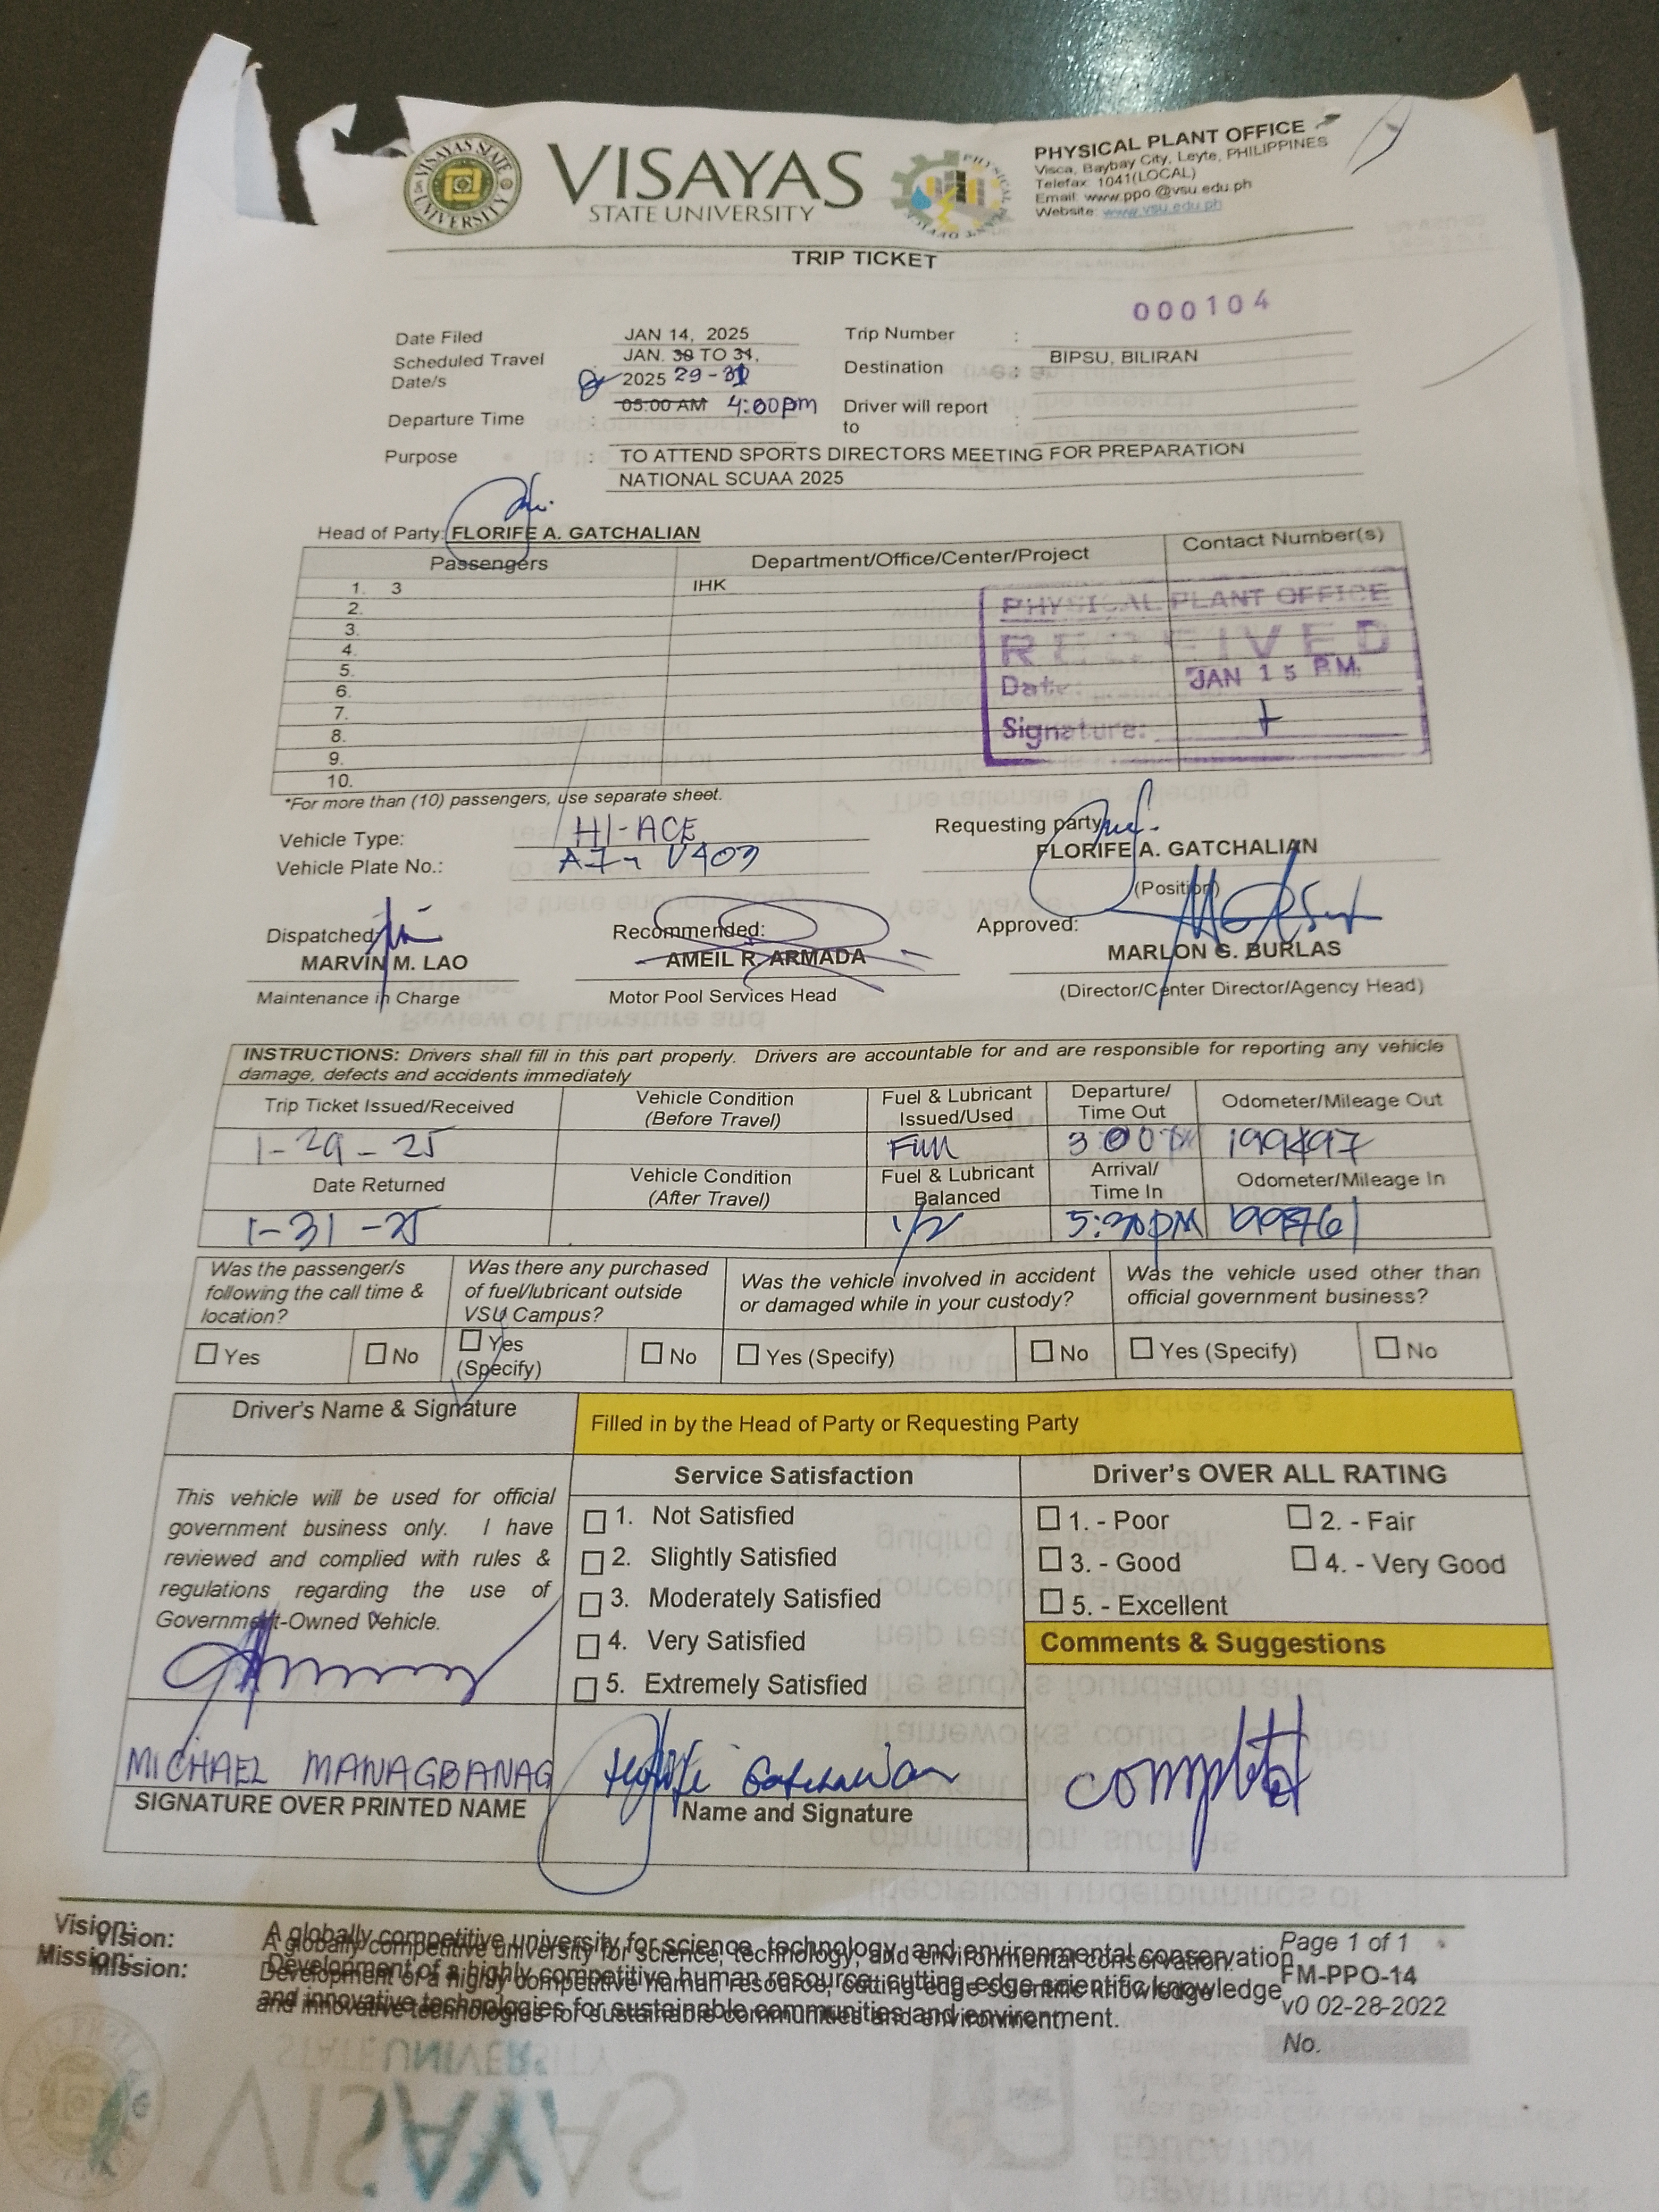 VISAYAS STATE UNIVERSITY
VISAYAS
STATE UNIVERSITY
PHYSICAL PLANT OFFICE
Visca, Baybay City, Leyte, PHILIPPINES
Telefax: 1041(LOCAL)
Email: www.ppo @vsu.edu.ph
Website: www.vsu.edu.ph
TRIP TICKET
000104
Date Filed JAN 14, 2025 Trip Number :
Scheduled Travel Date/s JAN. 30 TO 31, 2025 29-31 Destination : BIPSU, BILIRAN
Departure Time : 05:00 AM 4:00pm Driver will report to :
Purpose : TO ATTEND SPORTS DIRECTORS MEETING FOR PREPARATION
NATIONAL SCUAA 2025
Head of Party: FLORIFE A. GATCHALIAN
Passengers Department/Office/Center/Project Contact Number(s)
1. 3 IHK
2.
3.
4.
5.
6.
7.
8.
9.
10.
PHYSICAL PLANT OFFICE
RECEIVED
Date: JAN 15 P.M.
Signature:
*For more than (10) passengers, use separate sheet.
Vehicle Type: HI-ACE
Vehicle Plate No.: V403
Requesting party:
FLORIFE A. GATCHALIAN
(Position)
Dispatched: Recommended: Approved:
MARVIN M. LAO AMEIL R. ARMADA MARLON G. BURLAS
Maintenance in Charge Motor Pool Services Head (Director/Center Director/Agency Head)
INSTRUCTIONS: Drivers shall fill in this part properly. Drivers are accountable for and are responsible for reporting any vehicle
damage, defects and accidents immediately
Trip Ticket Issued/Received Vehicle Condition (Before Travel) Fuel & Lubricant Issued/Used Departure/ Time Out Odometer/Mileage Out
1-29-25 Full 3:00
Date Returned Vehicle Condition (After Travel) Fuel & Lubricant Balanced Arrival/ Time In Odometer/Mileage In
1-31-25 1/2 5:30PM
Was the passenger/s following the call time & location? Was there any purchased of fuel/lubricant outside VSU Campus? Was the vehicle involved in accident or damaged while in your custody? Was the vehicle used other than official government business?
Yes No Yes (Specify) No Yes (Specify) No Yes (Specify) No
Driver's Name & Signature Filled in by the Head of Party or Requesting Party
Service Satisfaction Driver's OVER ALL RATING
This vehicle will be used for official
government business only. I have
reviewed and complied with rules &
regulations regarding the use of
Government-Owned Vehicle.
1. Not Satisfied
2. Slightly Satisfied
3. Moderately Satisfied
4. Very Satisfied
5. Extremely Satisfied
1. - Poor 2. - Fair
3. - Good 4. - Very Good
5. - Excellent
Comments & Suggestions
MICHAEL MANAGBANAG Florife Gatchalian
SIGNATURE OVER PRINTED NAME Name and Signature
Vision: A globally competitive university for science, technology, and environmental conservation.
Mission: Development of a highly competitive human resource, cutting-edge scientific knowledge
and innovative technologies for sustainable communities and environment.
Page 1 of 1
FM-PPO-14
v0 02-28-2022
No.